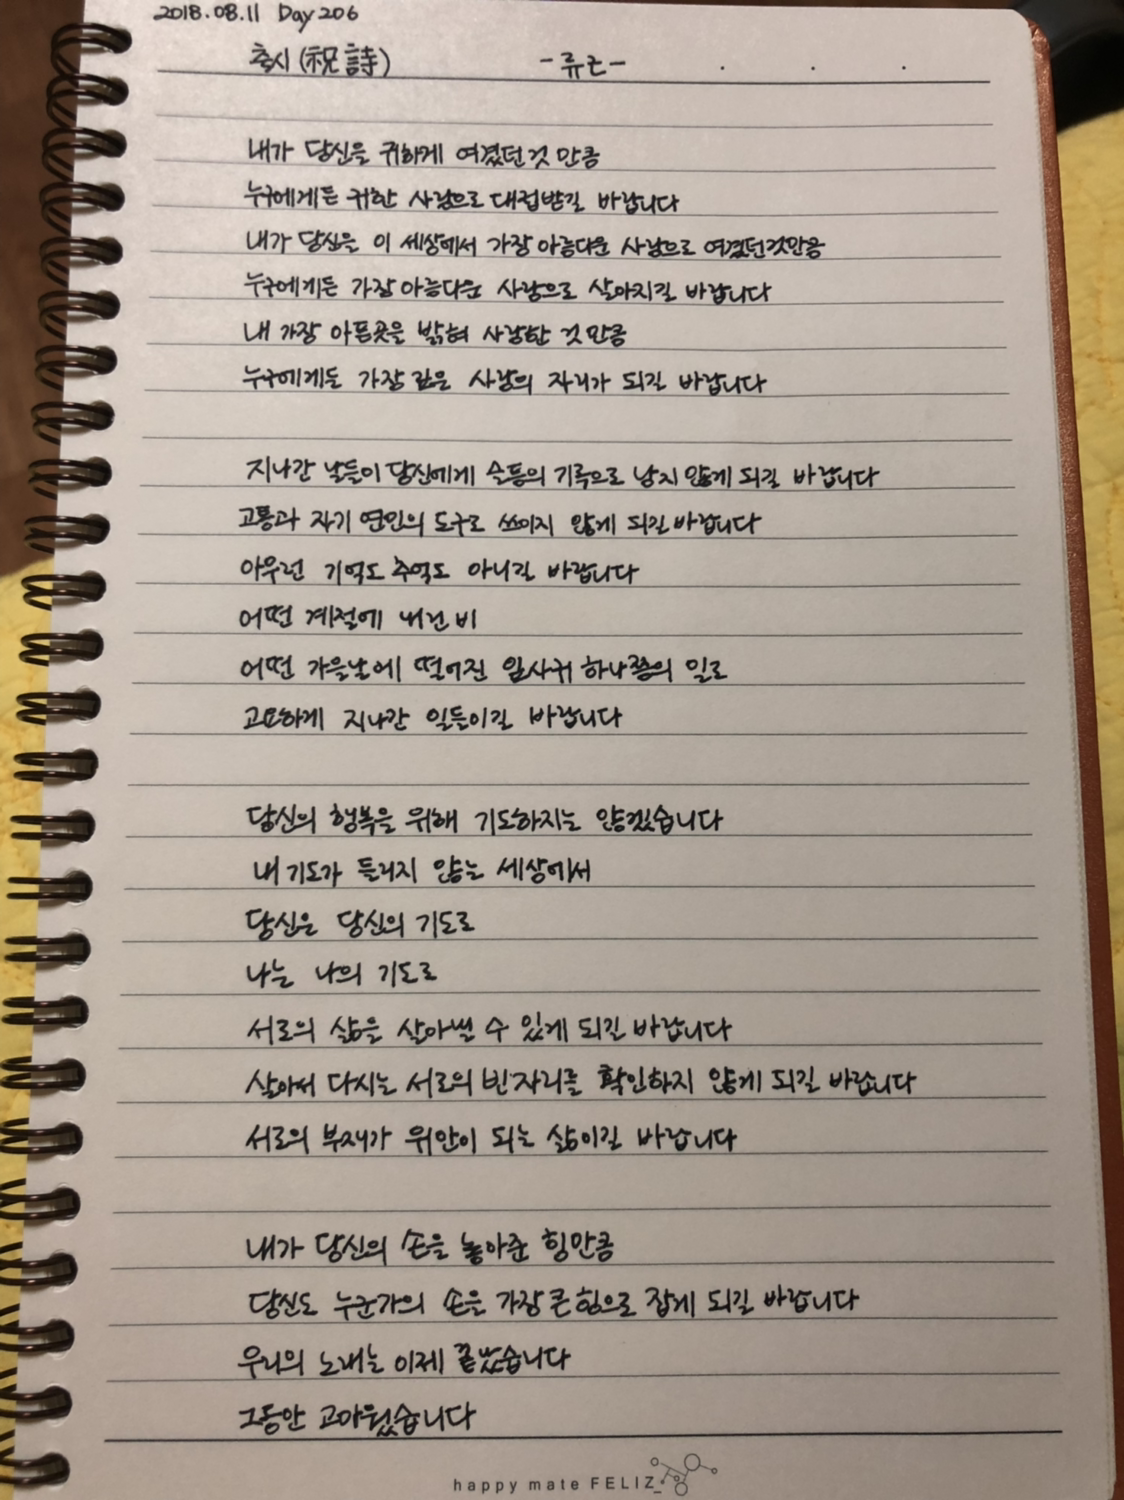 2018.08.11 Day206
축시(祝詩) -류근-
내가 당신을 귀하게 여겼던것 만큼
누구에게든 귀한 사람으로 대접받길 바랍니다
내가 당신을 이 세상에서 가장 아름다운 사람으로 여겼던것만큼
누구에게든 가장 아름다운 사람으로 살아지길 바랍니다
내 가장 아픈곳을 밝혀 사랑한 것 만큼
누구에게든 가장 깊은 사랑의 자리가 되길 바랍니다
지나간 날들이 당신에게 슬픔의 기록으로 남지 않게 되길 바랍니다
고통과 자기 연민의 도구로 쓰이지 않게 되길 바랍니다
아무런 기억도 추억도 아니길 바랍니다
어떤 계절에 내린 비
어떤 가을날에 떨어진 잎사귀 하나쯤의 일로
고요하게 지나간 일들이길 바랍니다
당신의 행복을 위해 기도하지는 않겠습니다
내 기도가 들리지 않는 세상에서
당신은 당신의 기도로
나는 나의 기도로
서로의 삶을 살아낼 수 있게 되길 바랍니다
살아서 다시는 서로의 빈자리를 확인하지 않게 되길 바랍니다
서로의 부재가 위안이 되는 삶이길 바랍니다
내가 당신의 손을 놓아준 힘만큼
당신도 누군가의 손을 가장 큰 힘으로 잡게 되길 바랍니다
우리의 노래는 이제 끝났습니다
그동안 고마웠습니다
happy mate FELIZ